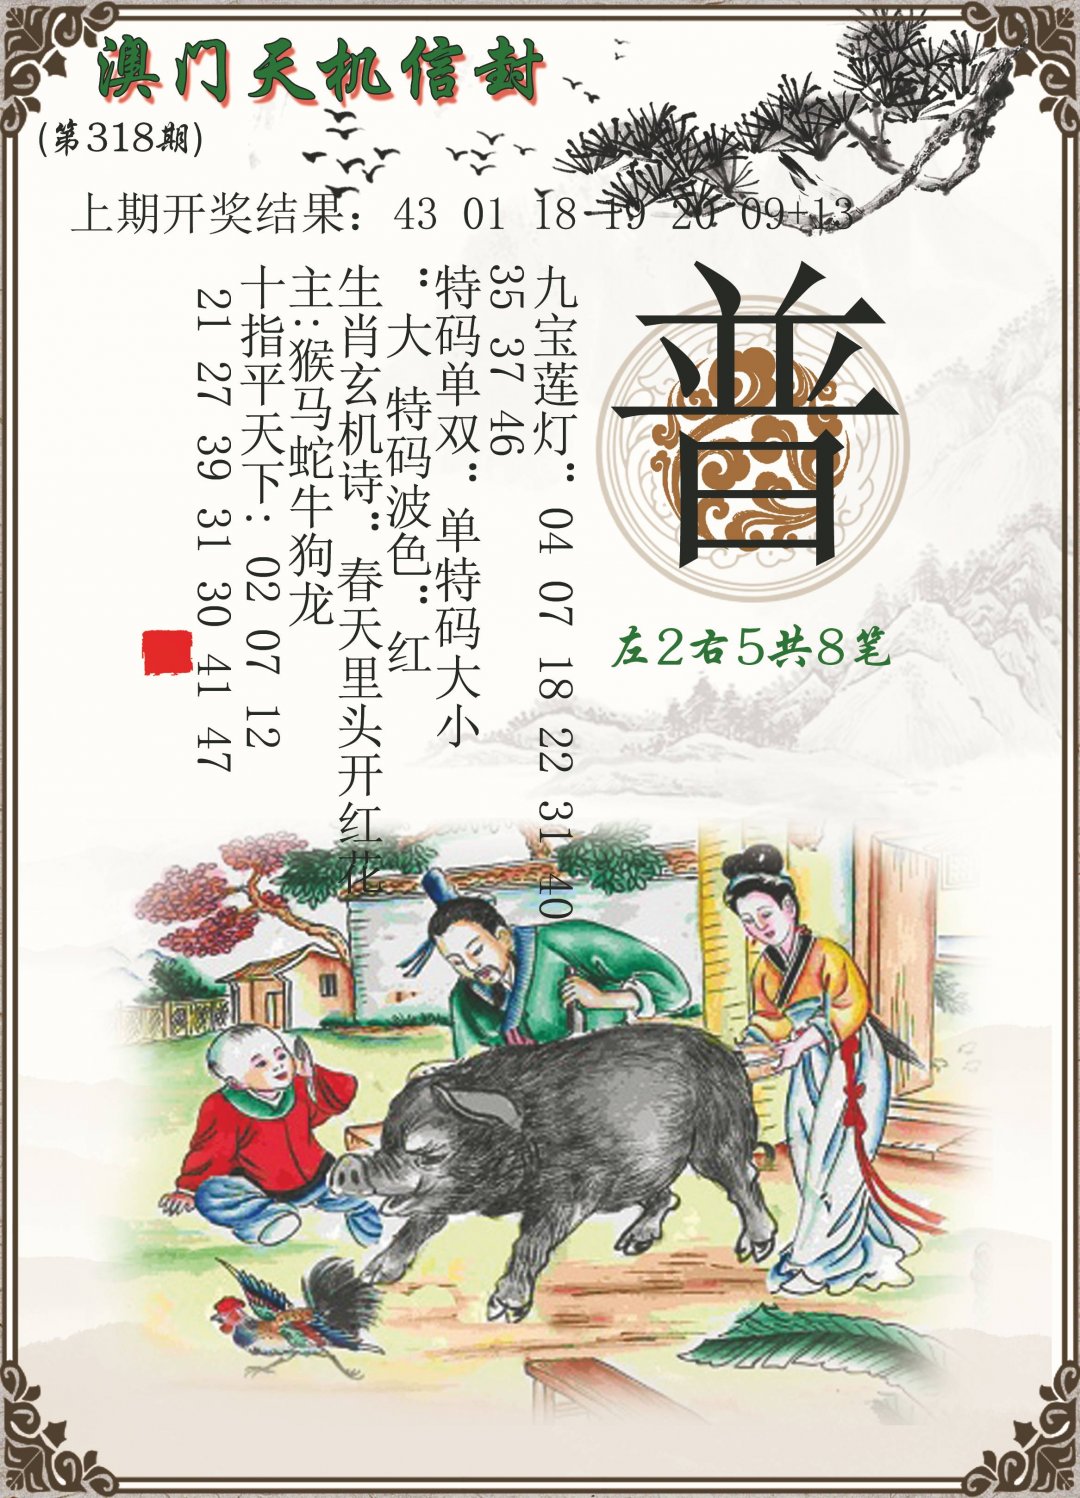 澳门天机信封
(第318期)
上期开奖结果：43 01 18 19 20 09+13
普
左2右5共8笔
九宝莲灯：04 07 18 22 31 40
35 37 46
特码单双：单特码大小
：大 特码波色：红
生肖玄机诗：春天里头开红花
主:猴马蛇牛狗龙
十指平天下：02 07 12
21 27 39 31 30 41 47